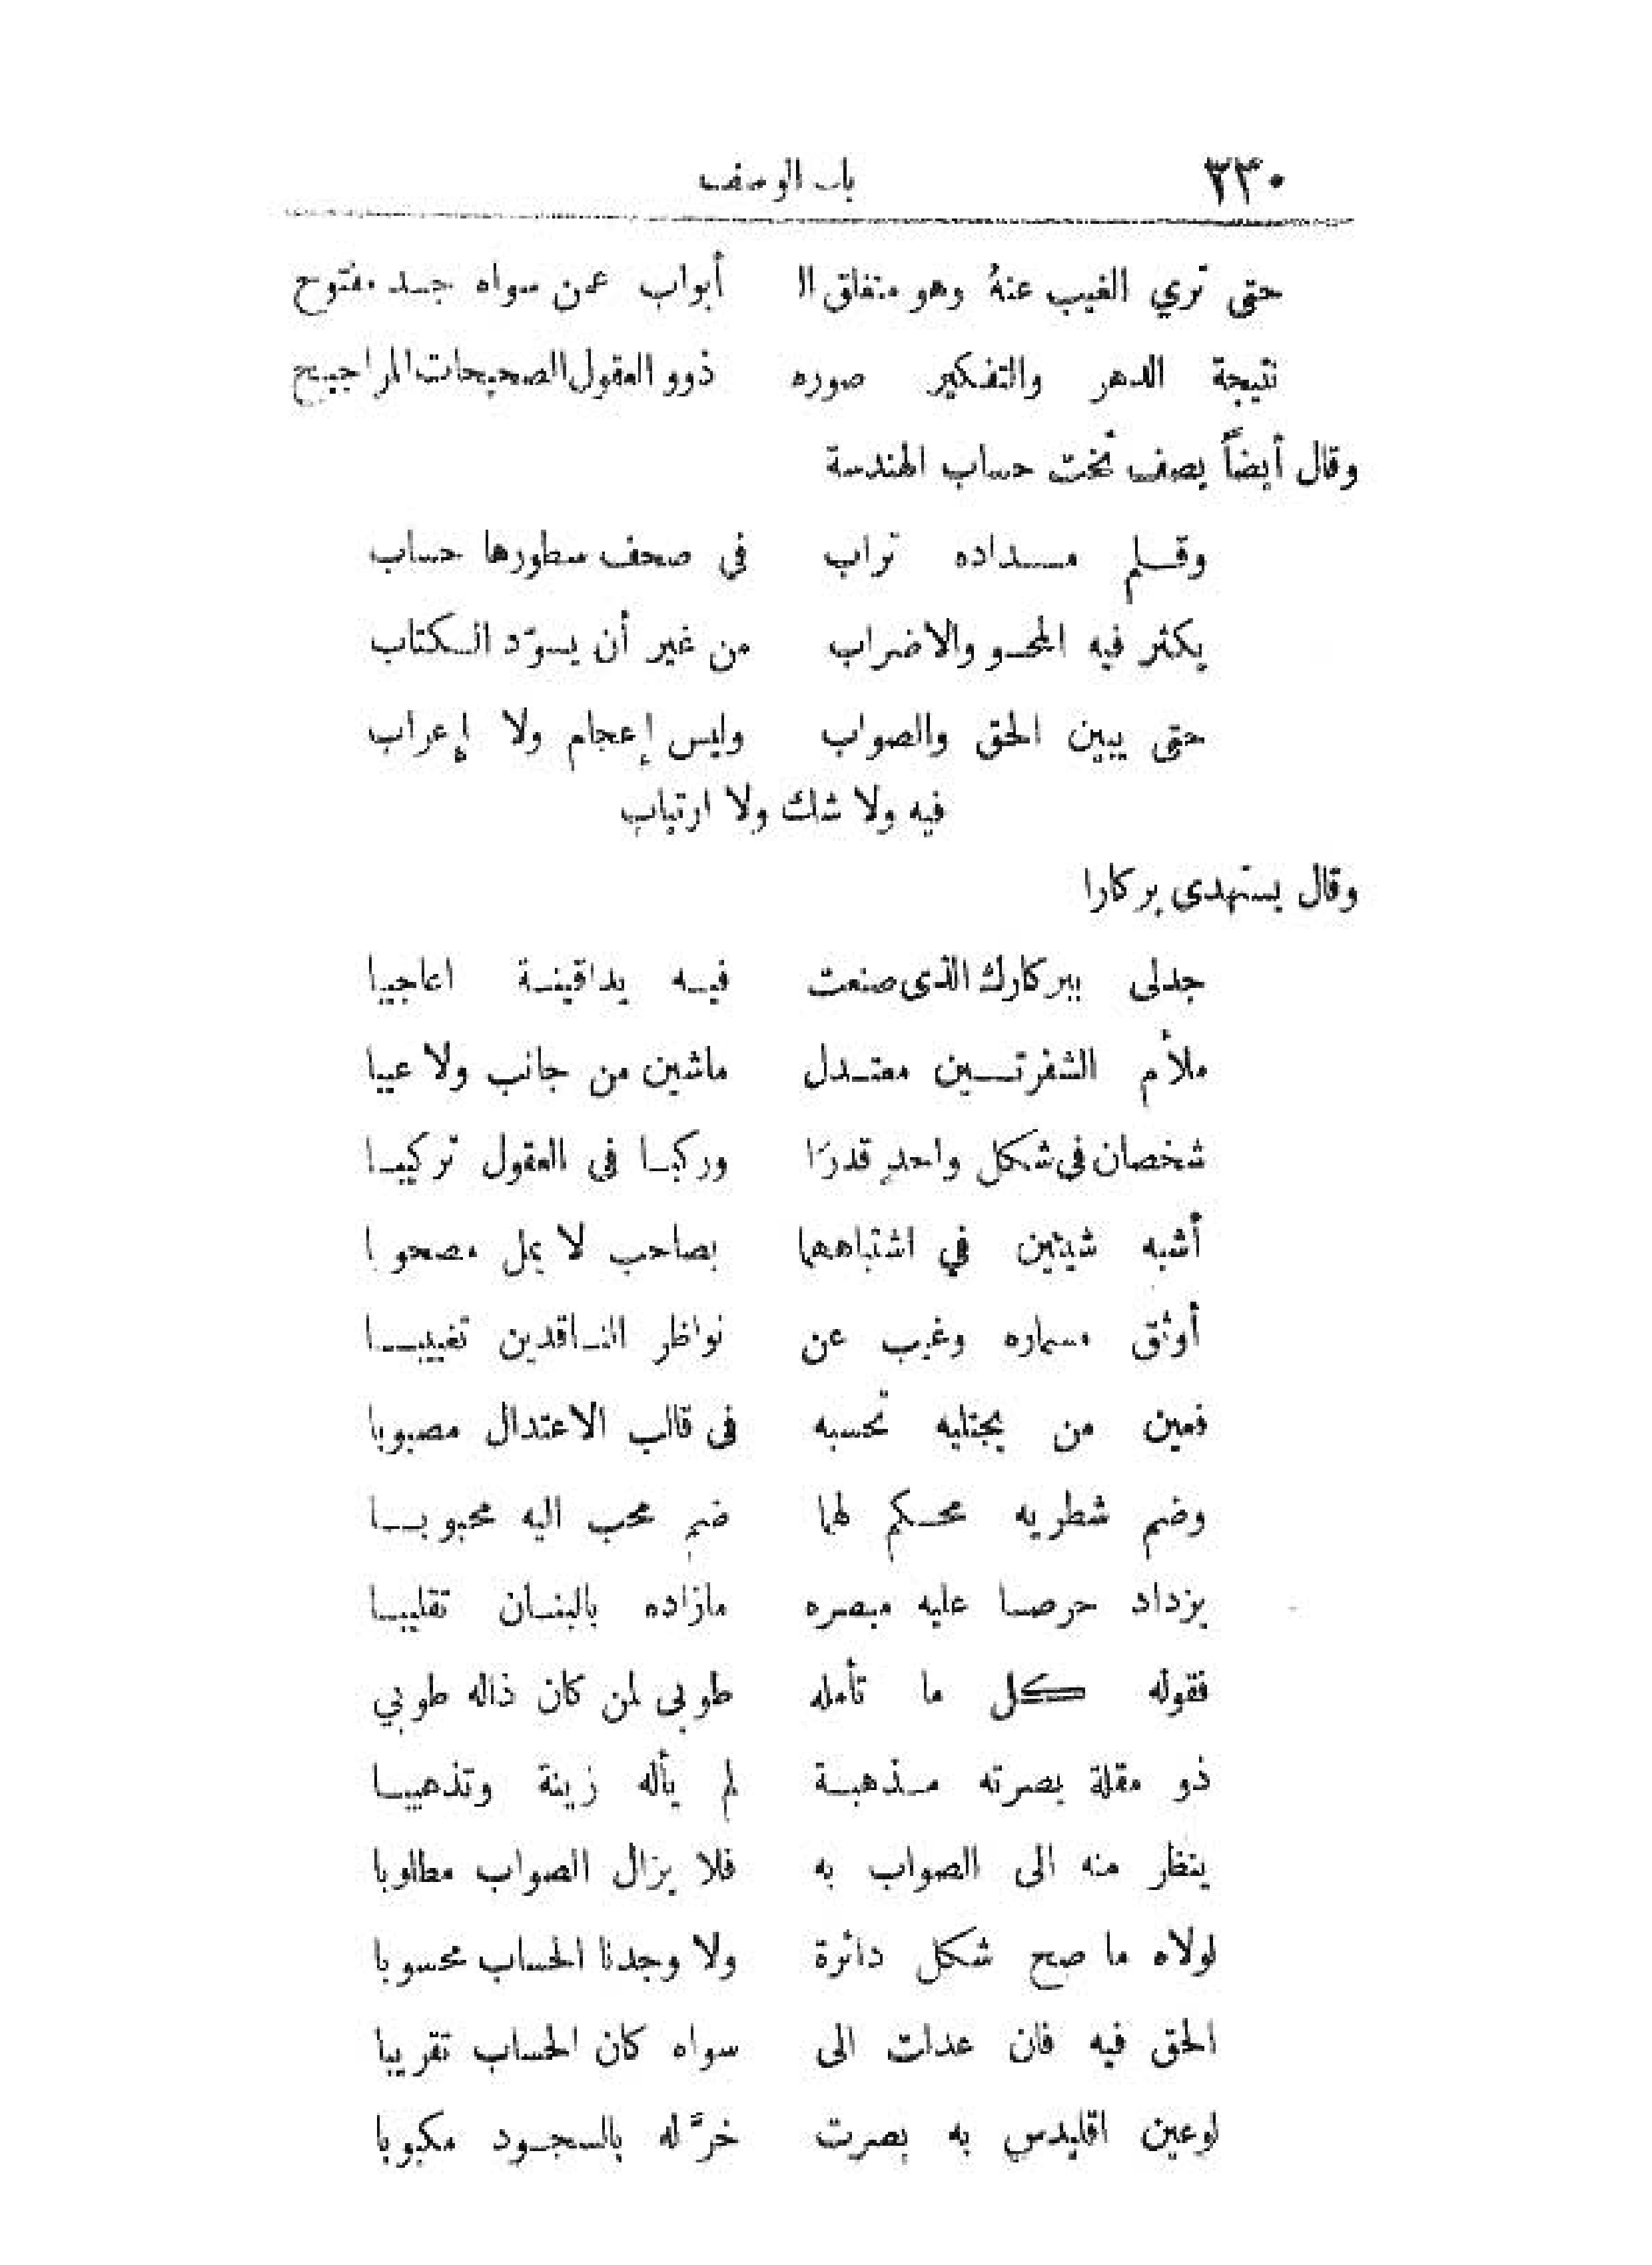 ٣٣٠ باب الوصف
حتى تري الغيب عنهُ وهو منغلق ال أبواب عمن سواه جد مفتوح
نتيجة الدهر والتفكير صوره ذوو العقول الصحيحات المراجيح
وقال أيضاً يصف تخت حساب الهندسة
وقلم مداده تراب في صحف سطورها حساب
يكثر فيه المحو والاضراب من غير أن يسوّد الكتاب
حتى يبين الحق والصواب وليس إعجام ولا إعراب
فيه ولا شك ولا ارتياب
وقال يستهدى بركارا
جدلى ببركارك الذى صنعت فيه يداقينة اعاجيبا
ملأم الشفرتين معتدل ماشين من جانب ولا عيبا
شخصان فى شكل واحدٍ قدرَا وركبا فى العقول تركيبا
أشبه شيئين في اشتباههما بصاحب لا يمل مصحوبا
أوثق مسماره وغيب عن نواظر الناقدين تغييبا
فعين من يجتليه تحسبه فى قالب الاعتدال مصبوبا
وضم شطريه محكم لهما ضم محب اليه محبوبا
يزداد حرصا عليه مبصره مازاده بالبنان تقليبا
فقوله كل ما تأمله طوبى لمن كان ذاله طوبي
ذو مقلة بصرته مذهبة لم يأله زينة وتذهيبا
ينظر منه الى الصواب به فلا يزال الصواب مطلوبا
لولاه ما صح شكل دائرة ولا وجدنا الحساب محسوبا
الحق فيه فان عدلت الى سواه كان الحساب تقريبا
لوعين اقليدس به بصرت خرَّ له بالسجود مكبوبا